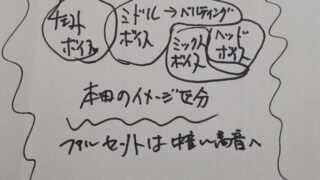 チェスト
ボイス
ミドル→ベルティング
ボイス
ミックス
ボイス
ヘッド
ボイス
本田のイメージ区分
ファルセットは 高音へ